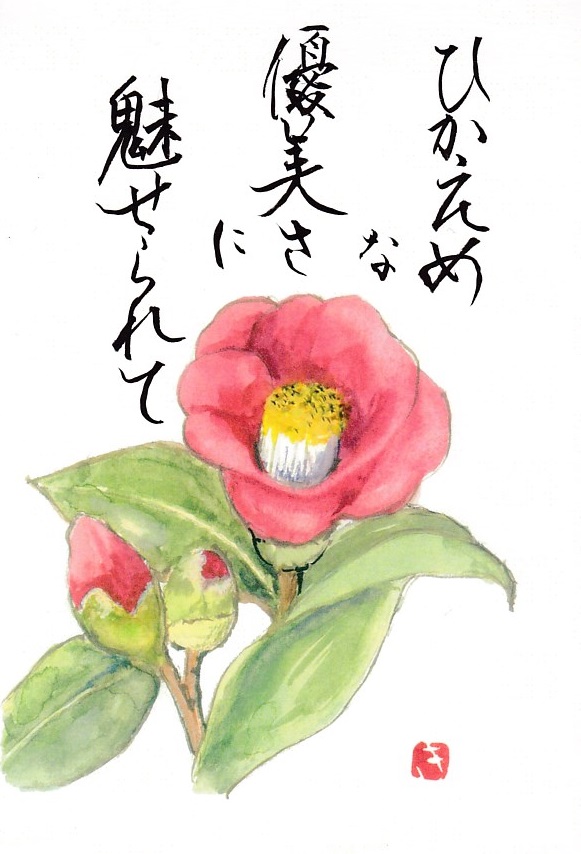 ひかえめな
優美さに
魅せられて